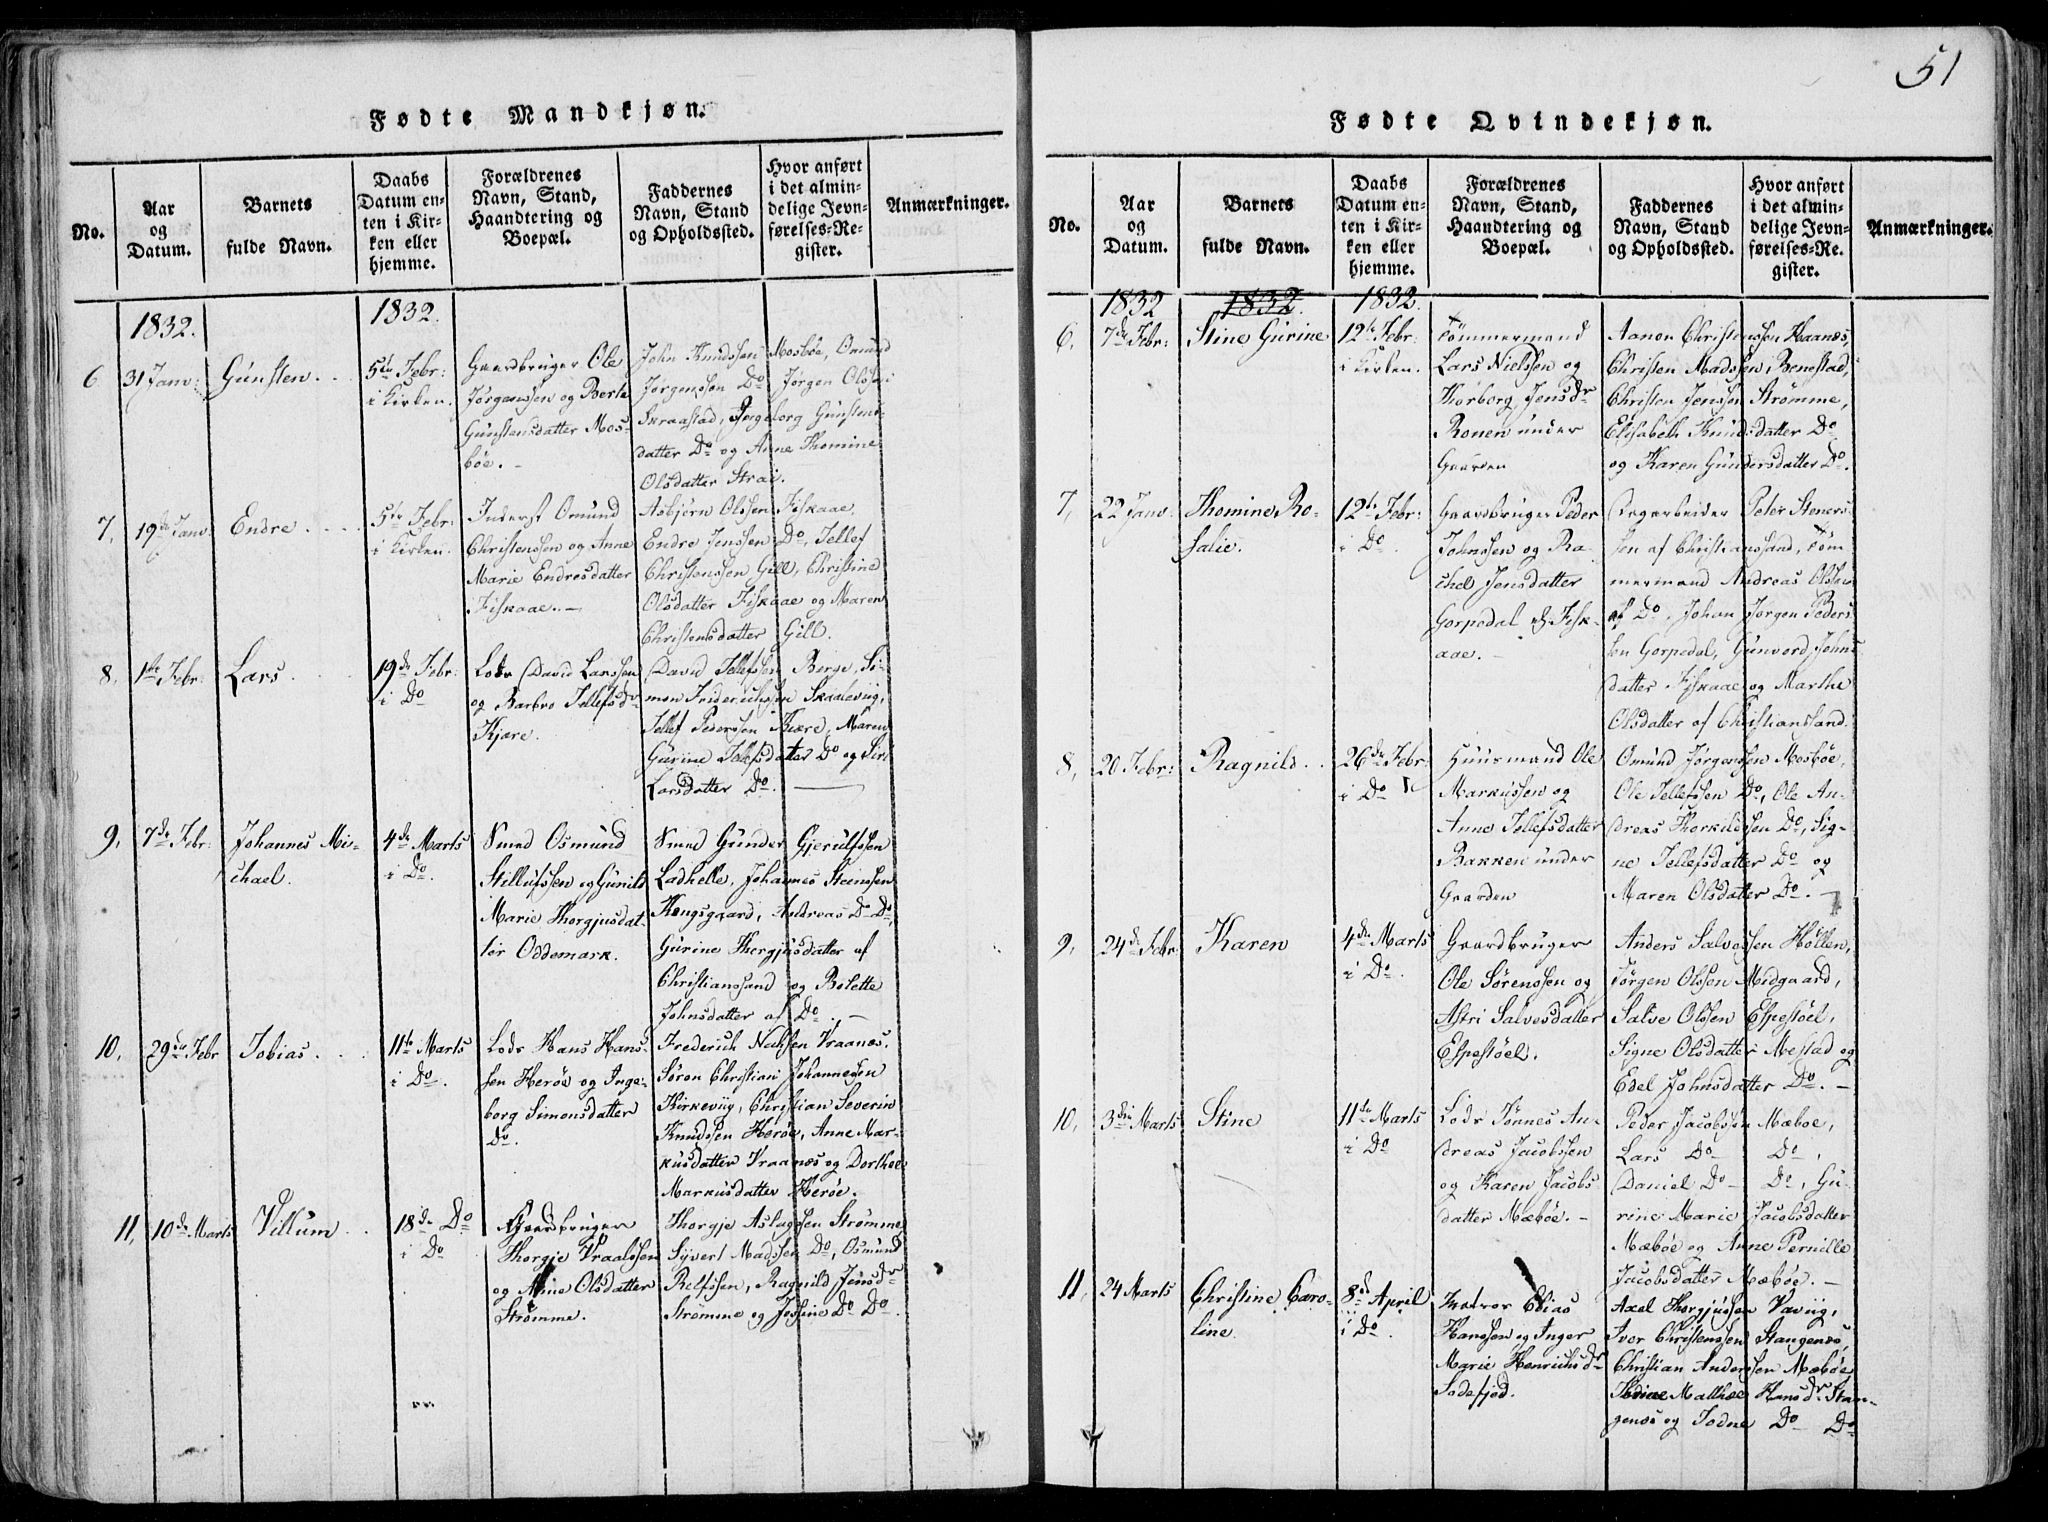 Fødte Mandkjøn.
No.
Aar
og
Datum.
Barnets
fulde Navn.
Daabs
Datum en-
ten i Kir-
ken eller
hjemme.
Forældrenes
Navn, Stand,
Haandtering og
Boepæl.
Faddernes
Navn, Stand
og Opholdssted.
Hvor anført
i det almin-
delige Jevn-
førelses-Re-
gister.
Anmærkninger.
1832.
1832.
6
31 Janv:
Gunsten.
5te Febr:
i Kirken.
Gaardbruger Ole
Jørgenssen og Berte
Gunstensdatter Mos-
bøe. -
John Knudssen Mosbøe, Omund
Jørgenssen Do Jørgen Olssen
Skraastad, Ingeborg Gunstens-
datter Do og Anne Thomine
Olsdatter Strai.
7,
19de Janv
Endre
5te Febr:
i Kirken.
Inderst Omund
Christenssen og Anne
Marie Endresdatter
Fiskaae. -
Asbjørn Olssen Fiskaae,
Endre Jenssen Do, Tellef
Christenssen Gill, Christine
Olsdatter Fiskaae og Maren
Christensdatter Gill.
8,
1ste Febr:
Lars.
19de Febr:
i Do
Lods David Larssen
og Barbro Tellefsdr
Kjære.
David Tellefsen Berge, Si-
mon Friderichssen Skaaleviig,
Tellef Pederssen Kjære, Maren
Gurine Tellefsdatter Do og Siri
Larsdatter Do.
9,
7de Febr:
Johannes Mi-
chael.
4de Marts
i Do.
Smed Osmund
Stillufssen og Gunild
Marie Thorgjusdat-
ter Oddemark.
Smed Gunder Gjerulfssen
Ladhelle, Johannes Steenssen
Kongsgaard, Andreas Do Do,
Gurine Thorgjusdatter af
Christianssand og Bolette
Johnsdatter af Do. -
10,
29de Febr
Tobias.
11te Marts
i Do.
Lods Hans Hans-
sen Herøe og Inge-
borg Simonsdatter
Do.
Frederich Nielsen Vraanes,
Søren Christian Johannessen
Kirkeviig, Christian Severin
Knudssen Herøe, Anne Mar-
kusdatter Vraanes og Dorthea
Markusdatter Herøe.
11,
10de Marts
Villum
18de Do
i Do
Gaardbruger
Thorgje Vraalssen
og Aine Olsdatter
Strømme.
Thorgje Aslagssen Strømme
Syvert Madssen Do, Osmund
Relfssen, Ragnild Jensdr
Strømme og Jossine Do Do.
51
Fødte Qvindekjøn.
No.
Aar
og
Datum.
Barnets
fulde Navn.
Daabs
Datum en-
ten i Kir-
ken eller
hjemme.
Forældrenes
Navn, Stand,
Haandtering og
Boepæl.
Faddernes
Navn, Stand
og Opholdssted.
Hvor anført
i det almin-
delige Jevn-
førelses-Re-
gister.
Anmærkninger.
1832
1832.
1832.
6,
7de Febr:
Stine Gurine
12te Febr:
i Kirken.
Tømmermand
Lars Nielssen og
Thorborg Jensdr
Ronen under
Gaarden
Aanon Christenssen Haanes,
Christen Madssen Benestad,
Christen Jenssen Strømme,
Elisabeth Knudsdatter Do
og Karen Gundersdatter Do.
7,
22 Janv:
Thomine Ro-
salie.
12te Febr:
i Do
Gaardbruger Peder
Johnssen og Ra-
chel Jensdatter
Gorpedal af Fisk-
aae. -
Dagarbeider Peter Steners-
sen af Christianssand, Tøm-
mermand Andreas Olssen
af Do, Johan Jørgen Peders-
sen Gorpedal, Gunvord Johns-
datter Fiskaae og Marthe
Olsdatter af Christianssand.
8,
20 Febr:
Ragnild.
26de Febr:
i Do
Huusmand Ole
Markussen og
Anne Tellefsdatter
Bakken under
Gaarden
Omund Jørgenssen Mosbøe,
Ole Tellefssen Do, Ole An-
dreas Thorkildssen Do, Sig-
ne Tellefsdatter Do og
Maren Olsdatter Do. -
9,
24de Febr
Karen
4de Marts
i Do.
Gaardbruger
Ole Sørenssen og
Astri Salvesdatter
Espestøel.
Anders Salvessen Høllen,
Jørgen Olssen Midgaard,
Salve Olssen Espestøel,
Signe Olsdatter Mestad og
Edel Johnsdatter Do. -
10,
3die Marts
Stine
11te Marts
i Do
Lods Tønnes An-
dreas Jacobssen
og Karen Jacobs-
datter Mæbøe. -
Peder Jacobssen Mæbøe,
Lars Do Do,
Daniel Do Do, Gu-
rine Marie Jacobsdatter
Mæbøe og Anne Pernille
Jacobsdatter Mæbøe. -
11,
24 Marts
Christine Caro-
line.
8de April
i Do.
Elias
Hanssen og Inger
Marie Henrichsdr
Sodefjed.
Axel Thorgjussen Vaviig,
Iver Christenssen Stangenes,
Christian Anderssen Mæbøe
Mathæe Hansdr Stan-
genæs og Todne Do Do